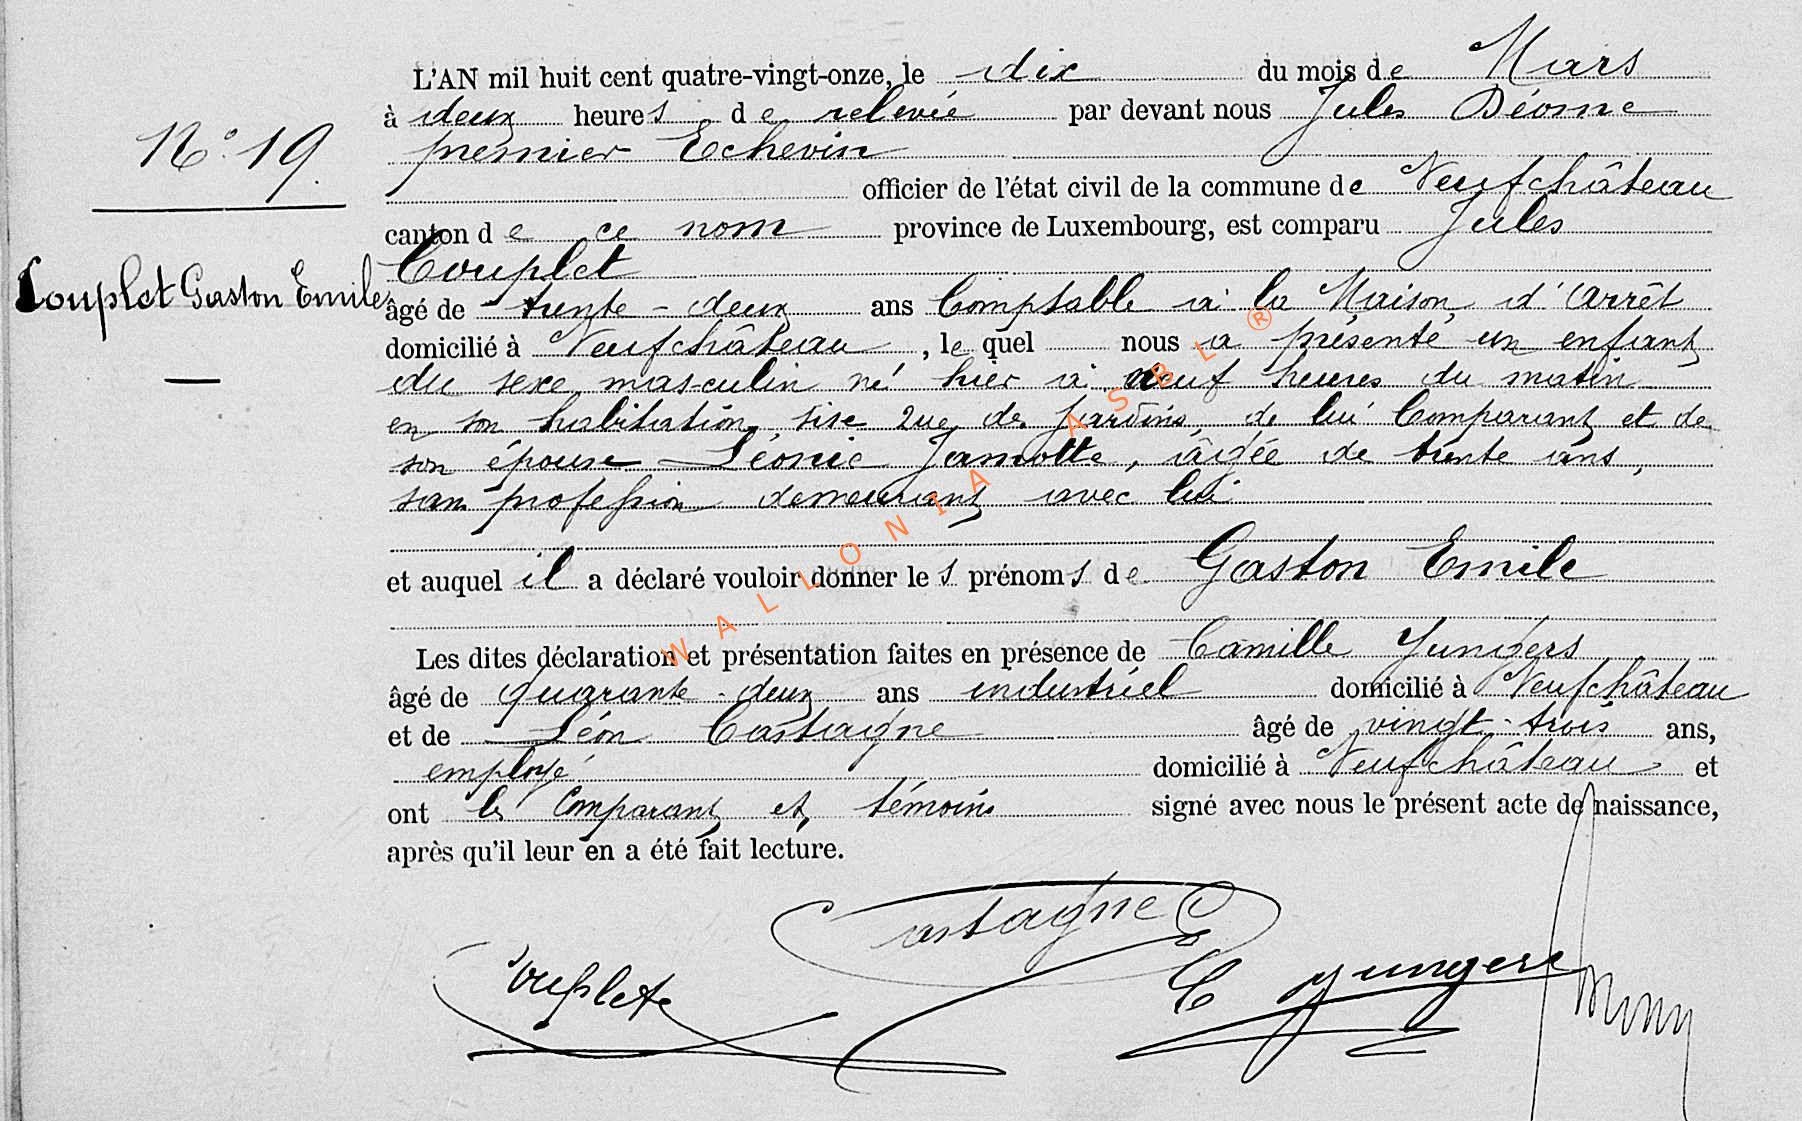 L'AN mil huit cent quatre-vingt-onze, le dix du mois de Mars
à deux heures de relevée par devant nous Jules Déome
N° 19.
premier Echevin
officier de l'état civil de la commune de Neufchâteau
canton de ce nom province de Luxembourg, est comparu Jules
Couplet
Couplet Gaston Emile
âgé de trente-deux ans Comptable à la Maison d'arrêt
domicilié à Neufchâteau, lequel nous a présenté un enfant
du sexe masculin né hier à neuf heures du matin
en son habitation, sise rue des Jardins, de lui Comparant et de
son épouse Léonie Jamotte, âgée de trente ans,
sans profession demeurant avec lui
et auquel il a déclaré vouloir donner les prénoms de Gaston Emile
Les dites déclaration et présentation faites en présence de Camille Yungers
âgé de quarante-deux ans industriel domicilié à Neufchâteau
et de Léon Castaigne âgé de vingt-trois ans,
employé domicilié à Neufchâteau et
ont les Comparant et témoins signé avec nous le présent acte de naissance,
après qu'il leur en a été fait lecture.
Castagne
Couplet
C Yungers
WALLONIA ASBL ®